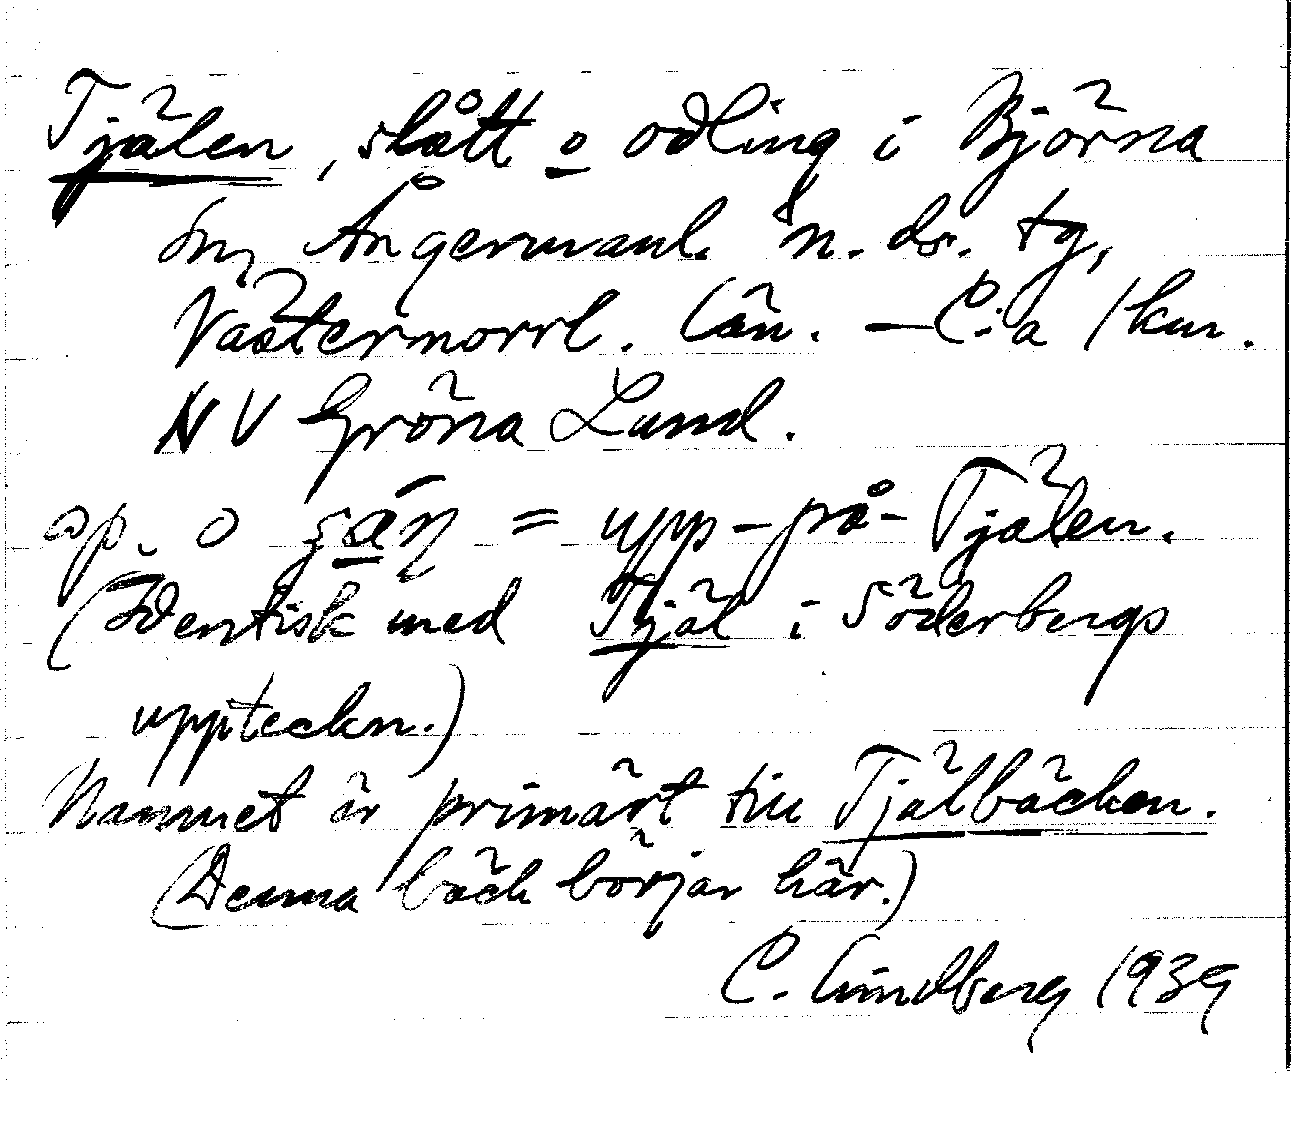 Tjälen, slått o odling i Björna
sn, Ångermanl. n. ds. tg,
Västermorrl. län. — C:a 1 km.
NV Gröna Lund.
op. o = upp-på-Tjälen.
(Identisk med Tjäl i Söderbergs
uppteckn.)
Namnet är primärt till Tjälbäcken.
(Denna bäck börjar här.)
C. Lindberg 1939